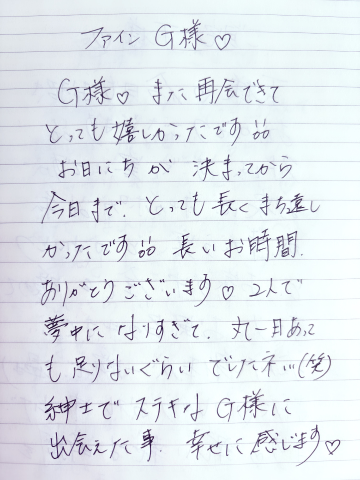 ファイン G様♡
G様♡ また再会できて
とっても嬉しかったです
お日にちが 決まってから
今日まで、とっても長くまち遠し
かったです 長いお時間、
ありがとうございます♡ 2人で
夢中になりすぎて、丸一日あって
も足りないぐらい でしたネ…(笑)
紳士で ステキな G様に
出会えた事、幸せに感じます♡